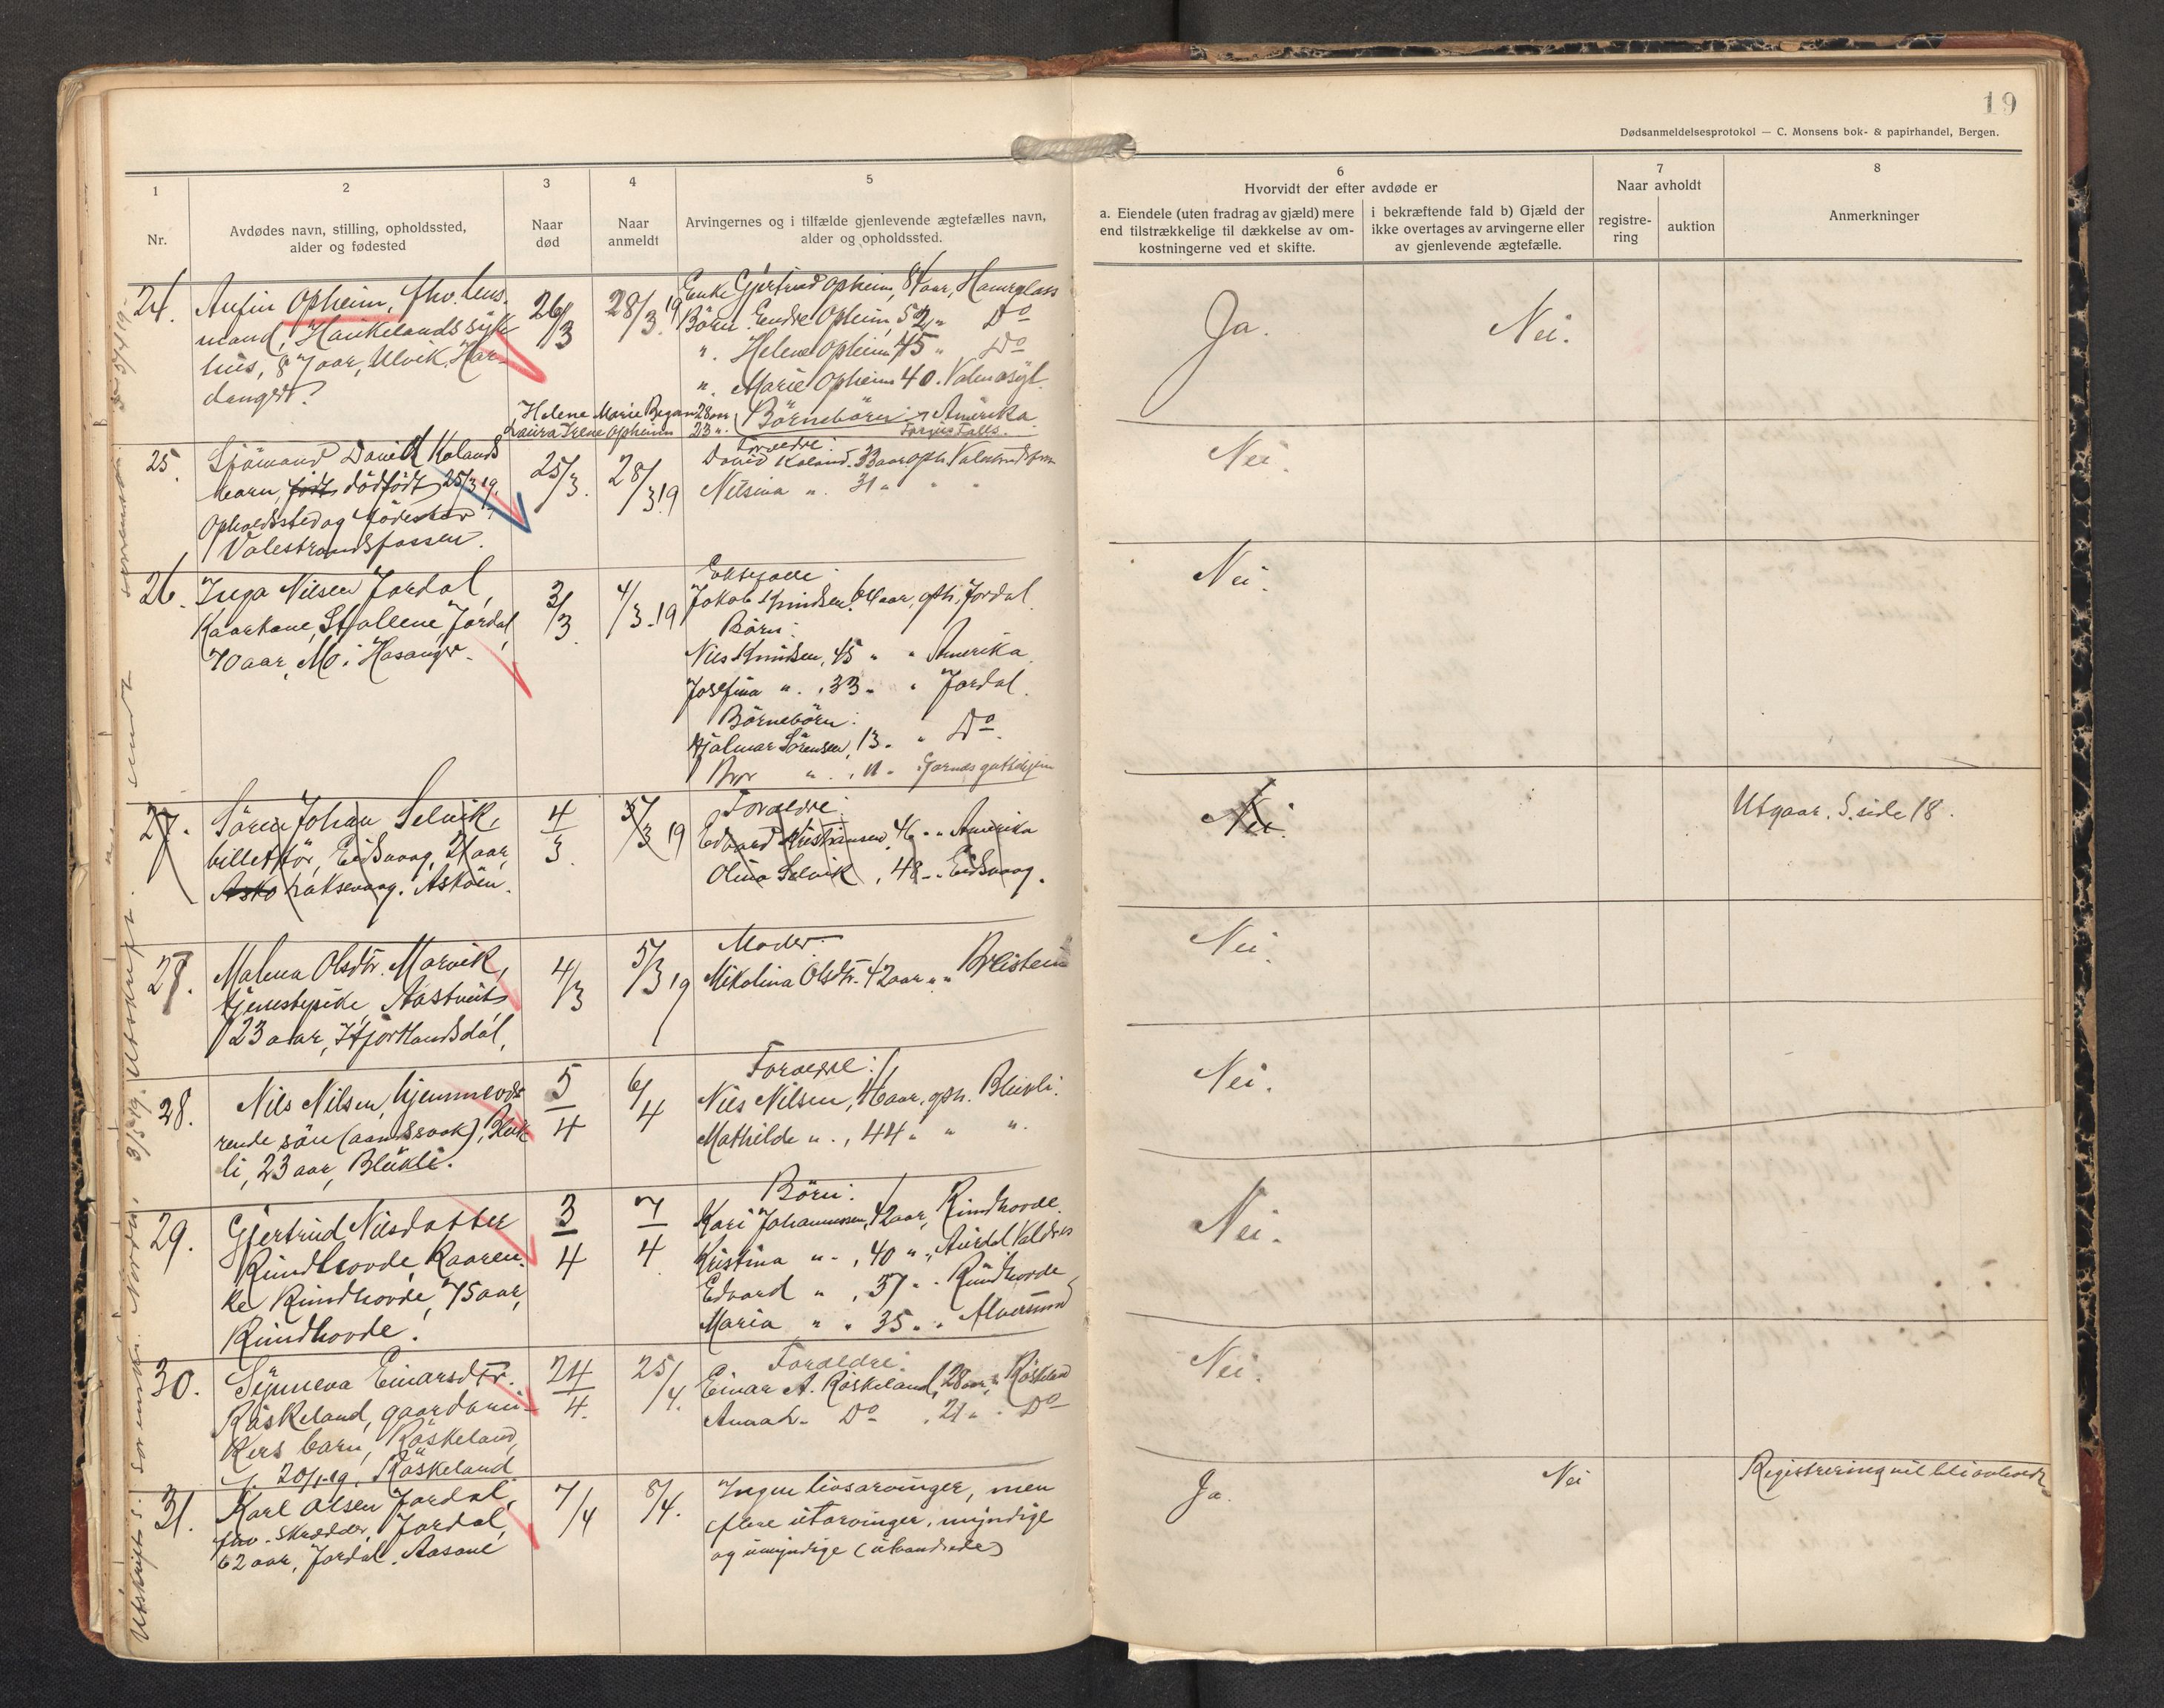 19
Dødsanmeldelsesprotokol — C. Monsens bok- & papirhandel, Bergen.
1
Nr.
2
Avdødes navn, stilling, opholdssted,
alder og fødested
3
Naar
død
4
Naar
anmeldt
5
Arvingernes og i tilfælde gjenlevende ægtefælles navn,
alder og opholdssted.
6
Hvorvidt der efter avdøde er
a. Eiendele (uten fradrag av gjæld) mere
end tilstrækkelige til dækkelse av om-
kostningerne ved et skifte.
i bekræftende fald b) Gjæld der
ikke overtages av arvingerne eller
av gjenlevende ægtefælle.
7
Naar avholdt
registre-
ring
auktion
8
Anmerkninger
24.
Anfin Opheim, fhv. hus-
mand, Haukelands syk-
hus, 87 aar, Ulvik, Har-
danger?
26/3
28/3 19
Enke Gjertrud Opheim, 81 aar,
Børn: Endre Opheim 52 " Do
". Helene Opheim 45 " Do
". Marie Opheim 40.
Helene Marie 28 aar
Laura Irene Opheim 23 ".
Børnebørn Amerika
Fergus Falls.
Ja.
Nei.
25.
Sjömand David Kolands
barn, født dödfödt 25/3 19.
Opholdssted og födested
Valestrandsfossen.
25/3.
28/3 19
Foreldre:
David Koland. 33 aar oph.
Nilsina ". 31 "
Nei.
26.
Inga Nilsen Jordal,
Kaarkone, Jordal
70 aar, Mo i Hosanger.
3/3
4/3-19
Ektefælle:
Jakob Knudsen, aar, oph. Jordal.
Børn:
Nils Knudsen, 45 " " Amerika.
Josefina ". , 33 " " Jordal.
Börnebörn:
Hjalmar Sörensen, 13 " " Do.
". , 11 "
Nei.
27.
Sören Johan Selvik,
billettör, Eidsvaag, 21 aar,
Asko Askøen.
4/3.
5/3 19
Foreldre:
Edvard Kristiansen, 46 " " Amerika
Olina Selvik , 48 " Eidsvaag.
Nei.
Utgaar. S. side 18.
27.
Malena Olsdtr. Marvik,
tjenestepike, Aastveit
23 aar, Hjortlandsdal,
4/3
5/3 19
Moder:
Mikolina Olsdtr. 42 aar " " Breistein
Nei.
28.
Nils Nilsen, hjemmevæ-
rende sön (aandssvak), Bleik-
li, 23 aar, Bleikli.
5/4
6/4
Foreldre:
Nils Nilsen, 46 aar, oph. Bleikli.
Mathilde ". , 44 " " ".
Nei.
29.
Gjertrud Nilsdatter
Rundhovde, Kaaren-
ke Rundhovde, 75 aar,
Rundhovde.
3/4
7/4
Børn:
Kari Johannessen, 42 aar, Rundhovde.
Kristina " , 40 " , Aurdal Valdres
Edvard " , 37 " " Rundhovde
Maria " " 35 " " Alversund
Nei.
30.
Synneva Einarsdtr.
Röskeland, gaardbru-
kers barn, Röskeland,
f. 20/1-19, Röskeland
24/4.
25/4.
Foreldre:
Einar A. Röskeland, 28 aar, Röskeland
Anna Do , 21 " " Do
Nei.
31.
Karl Olsen Jordal,
fhv. skrædder, Jordal,
62 aar, Jordal. Aasane
7/4
8/4.
Ingen livsarvinger, men
flere utarvinger, myndige
og umyndige (utvandrede)
Ja.
Nei
Registrering vil bli avholdt